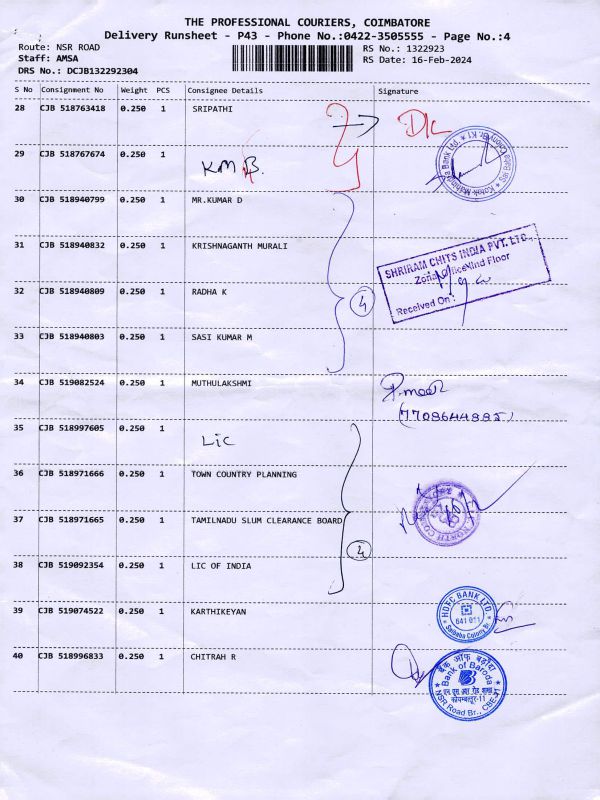 THE PROFESSIONAL COURIERS, COIMBATORE
Delivery Runsheet - P43 - Phone No.:0422-3505555 - Page No.:4
Route: NSR ROAD RS No.: 1322923
Staff: AMSA RS Date: 16-Feb-2024
DRS No.: DCJB132292304
S No Consignment No Weight PCS Consignee Details Signature
28 CJB 518763418 0.250 1 SRIPATHI
29 CJB 518767674 0.250 1
KMB.
Kotak Mahindra Bank
30 CJB 518940799 0.250 1 MR.KUMAR D
31 CJB 518940832 0.250 1 KRISHNAGANTH MURALI
SHRIRAM CHITS INDIA PVT. LTD.,
Zonal Office IInd Floor
Received On
32 CJB 518940809 0.250 1 RADHA K
4
33 CJB 518940803 0.250 1 SASI KUMAR M
34 CJB 519082524 0.250 1 MUTHULAKSHMI
35 CJB 518997605 0.250 1
LIC
36 CJB 518971666 0.250 1 TOWN COUNTRY PLANNING
37 CJB 518971665 0.250 1 TAMILNADU SLUM CLEARANCE BOARD
4
38 CJB 519092354 0.250 1 LIC OF INDIA
39 CJB 519074522 0.250 1 KARTHIKEYAN
HDFC BANK LTD.
641 011
Saibaba Colony Br.
40 CJB 518996833 0.250 1 CHITRAH R
बैंक ऑफ बड़ौदा
Bank of Baroda
एन एस आर रोड शाखा
कोयम्बतूर-11
NSR Road Br., CBE-11